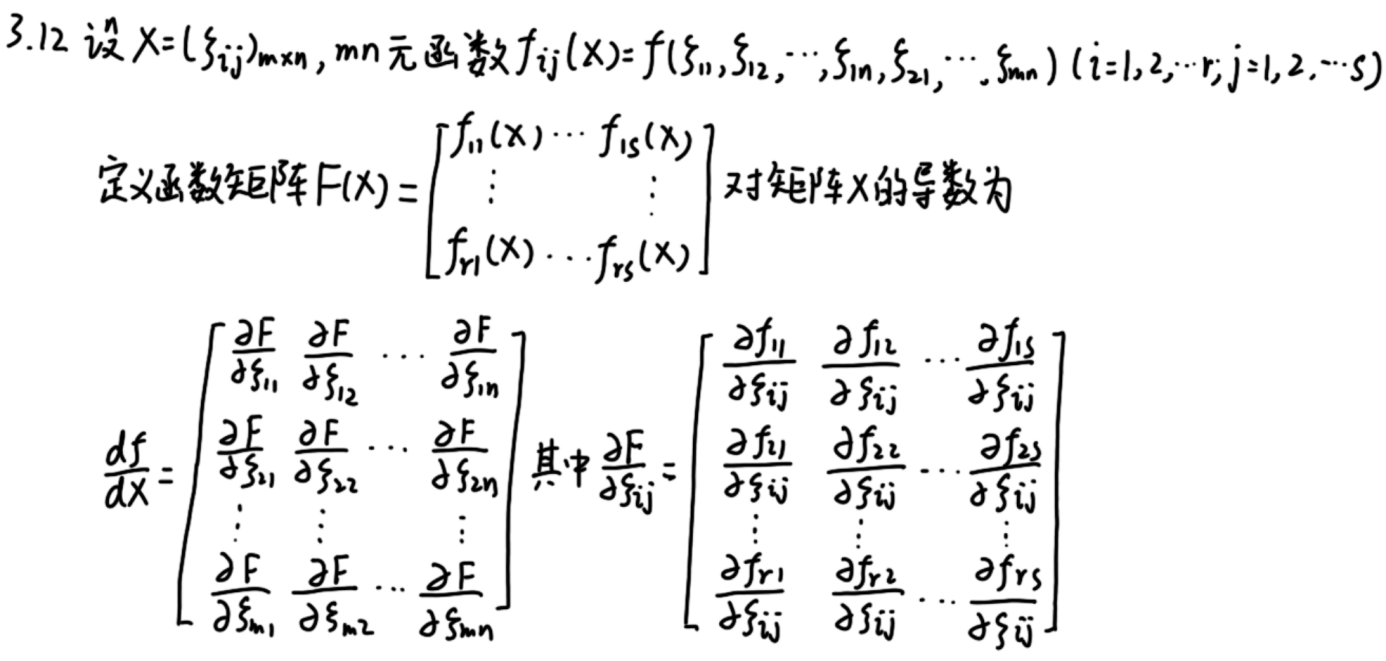 3.12 设 X=(ξ_{ij})_{m×n}, mn元函数 f_{ij}(X)=f(ξ_{11},ξ_{12},⋯,ξ_{1n},ξ_{21},⋯,ξ_{mn}) (i=1,2,⋯r;j=1,2,⋯s)
定义函数矩阵 F(X)=\begin{bmatrix} f_{11}(X) & \cdots & f_{1s}(X) \\ \vdots & & \vdots \\ f_{r1}(X) & \cdots & f_{rs}(X) \end{bmatrix} 对矩阵X的导数为
\frac{df}{dX}=\begin{bmatrix} \frac{∂F}{∂ξ_{11}} & \frac{∂F}{∂ξ_{12}} & \cdots & \frac{∂F}{∂ξ_{1n}} \\ \frac{∂F}{∂ξ_{21}} & \frac{∂F}{∂ξ_{22}} & \cdots & \frac{∂F}{∂ξ_{2n}} \\ \vdots & \vdots & & \vdots \\ \frac{∂F}{∂ξ_{m1}} & \frac{∂F}{∂ξ_{m2}} & \cdots & \frac{∂F}{∂ξ_{mn}} \end{bmatrix} 其中 \frac{∂F}{∂ξ_{ij}}=\begin{bmatrix} \frac{∂f_{11}}{∂ξ_{ij}} & \frac{∂f_{12}}{∂ξ_{ij}} & \cdots & \frac{∂f_{1s}}{∂ξ_{ij}} \\ \frac{∂f_{21}}{∂ξ_{ij}} & \frac{∂f_{22}}{∂ξ_{ij}} & \cdots & \frac{∂f_{2s}}{∂ξ_{ij}} \\ \vdots & \vdots & & \vdots \\ \frac{∂f_{r1}}{∂ξ_{ij}} & \frac{∂f_{r2}}{∂ξ_{ij}} & \cdots & \frac{∂f_{rs}}{∂ξ_{ij}} \end{bmatrix}